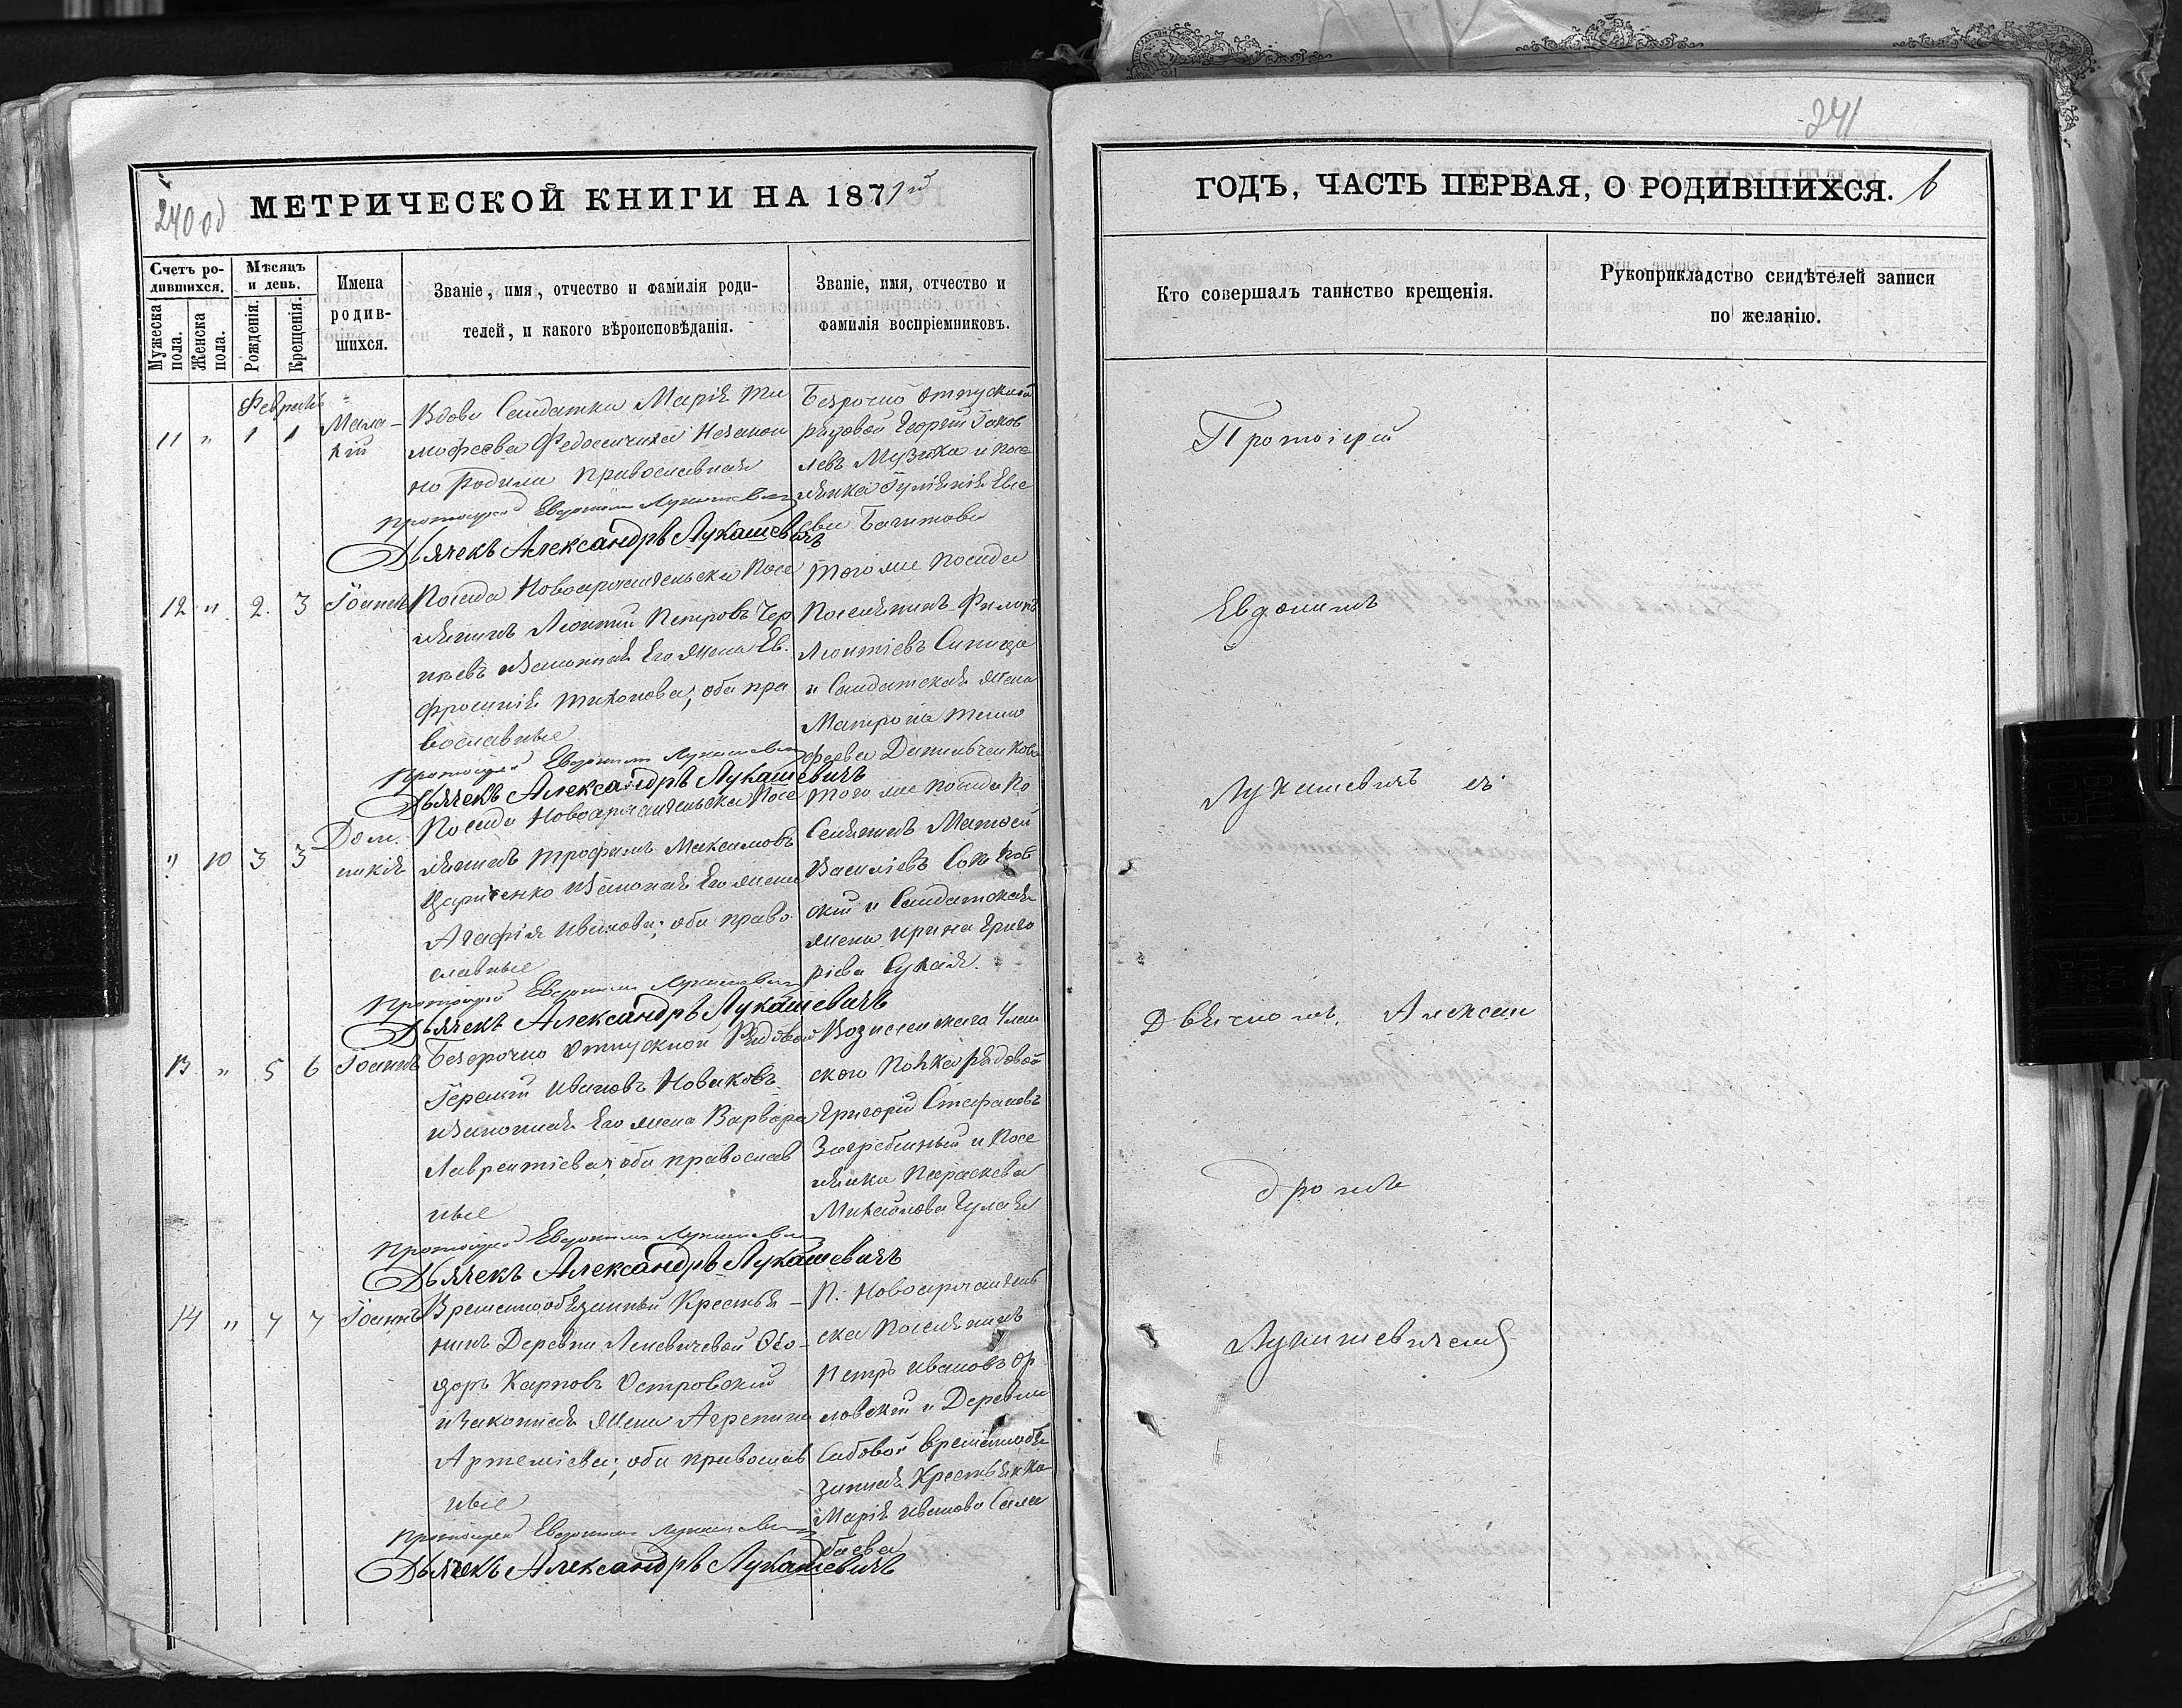 240 об
МЕТРИЧЕСКОЙ КНИГИ НА 1871й
Счетъ ро-
дившихся.
Мужеска
пола.
Женска
пола.
Мѣсяцъ
и день.
Рожденія.
Крещенія.
Имена
родив-
шихся.
Званіе, имя, отчество и фамилія роди-
телей, и какого вѣроисповѣданія.
Званіе, имя, отчество и
фамилія воспріемниковъ.
Февраль
11 " 1 1
Мала-
хій
Вдова Салдатка Марія Ти
мофеева Федосеичиха Незакон
но Родила Православная
Протоіерей Евдокимъ Лукашевичъ
Дьячекъ Александръ Лукашевичъ
Безрочно отпускной
рядовой Георгій Іаков
левъ Музыка и посе
лянка
12 " 2. 3
Іоаннъ
Посада Новоархангельска Посе
лянинъ Леонтій Петровъ Чер
изаконная Его Жена Ев.
фросинія Тихонова; оба пра
вославные
Протоіерей Евдокимъ Лукашевичъ
Дьячекъ Александръ Лукашевичъ
Того же посада
Поселянинъ
Леонтіевъ Синица
и Салдатская Жена
Матрона Тимо
феева
" 10 3 3
Дом.
никія
Посада Новоархангельска Посе
лянинъ Трофимъ Максимовъ
Царитенко изаконная Его Жена
Агафія Иванова; оба право
славные
Протоіерей Евдокимъ Лукашевичъ
Дьячекъ Александръ Лукашевичъ
Того же посада По
селянинъ Матвей
Василіевъ
скій и Салдатская
Жена Ирина Григо
ріева Сухая.
13 " 5 6
Іоаннъ
Безсрочно Отпускной Рядовой
Ивановъ Новаковъ
изаконная Его Жена Варвара
Лаврентіева; оба православ
ные
Протоіерей Евдокимъ Лукашевичъ
Дьячекъ Александръ Лукашевичъ
Вознесенскаго Улан
ского Полка Рядовой
Григорій Стефановъ
Загребенный и Посе
лянка Параскева
Михайлова
14 " 7 7
Іоаннъ
Временнообязанный Крестья-
нинъ Деревни Ѳео-
доръ Карповъ Островскій
изаконная Жена Агрепина
Артеміева; оба православ
ные
Протоіерей Евдокимъ Лукашевичъ
Дьячекъ Александръ Лукашевичъ
П. Новоархангель
ска Поселянинъ
Петръ Ивановъ Ор
ловскій и Деревни
Садовой Временнообя
занная Крестьянка
Марія Иванова Сала
баева
241
ГОДЪ, ЧАСТЬ ПЕРВАЯ, О РОДИВШИХСЯ. 6
Кто совершалъ таинство крещенія.
Рукоприкладство свидѣтелей записи
по желанію.
Протоіерей
Евдокимъ
Лукашевичъ съ
Дьячкомъ Алексан
дромъ
Лукашевичемъ